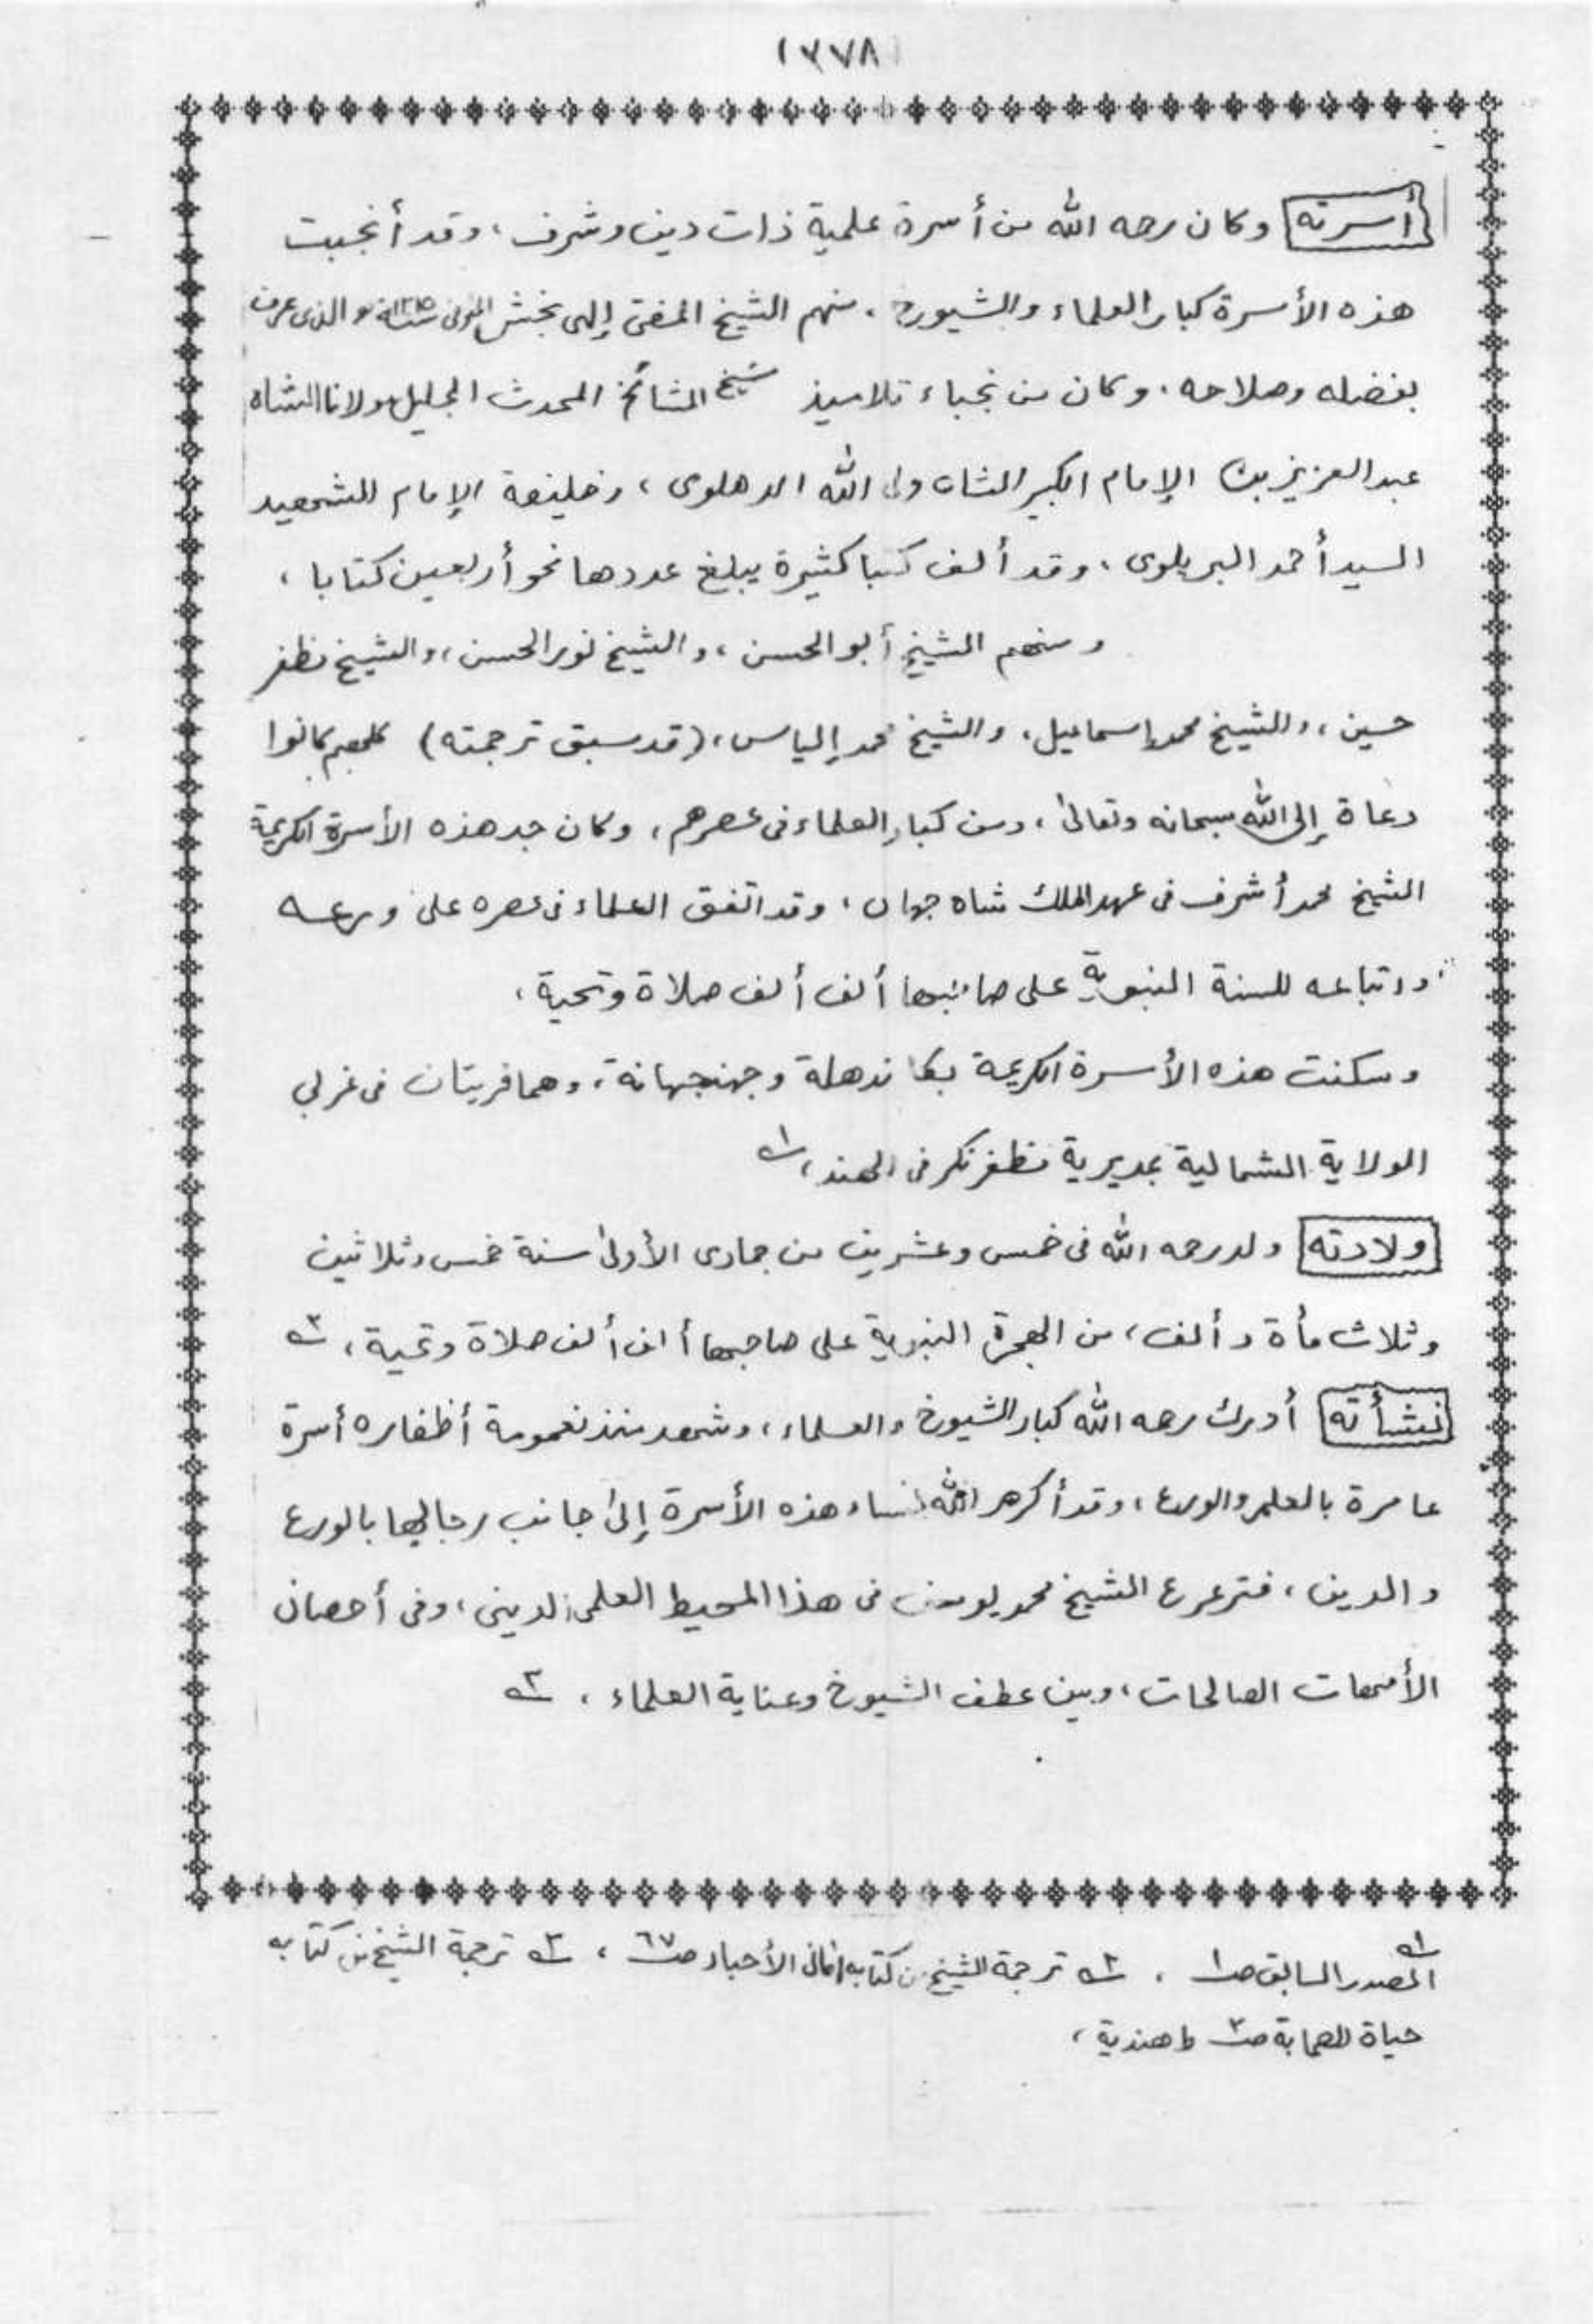 ١٣٧٨
أسرته وكان رحمه الله من أسرة علمية ذات دين وشرف ، وقد أنجبت
هذه الأسرة كبار العلماء والشيوخ ، منهم الشيخ المفتى إلهى بخش المتوفى والذى عرف
بفضله وصلاحه . وكان من نجباء تلاميذ شيخ المشائخ المحدث الجليل مولانا الشاه
عبد العزيز بن الإمام الكبير الشاه ولى الله الدهلوى ، وخليفة الإمام الشهيد
السيد أحمد البريلوى ، وقد ألف كتبا كثيرة يبلغ عددها نحو أربعين كتابا ،
ومنهم الشيخ أبو الحسن ، والشيخ نور الحسن ، والشيخ مظفر
حسين ، والشيخ محمد إسماعيل ، والشيخ محمد إلياس ، (قد سبق ترجمته) كلهم كانوا
دعاة إلى الله سبحانه وتعالى ، ومن كبار العلماء فى عصرهم ، وكان جد هذه الأسرة الكريمة
الشيخ محمد أشرف فى عهد الملك شاه جهان ، وقد اتفق العلماء فى عصره على ورعه
واتباعه للسنة النبوية على صاحبها ألف ألف صلاة وتحية ،
وسكنت هذه الأسرة الكريمة بكاندهلة وجهنجهانة ، وهما قريتان فى غربي
الولاية الشمالية بمديرية مظفر نكر فى الهند ، ١ـه
ولادته ولد رحمه الله فى خمس وعشرين من جمادى الأولى سنة خمس وثلاثين
وثلاث مأة وألف ، من الهجرة النبوية على صاحبها ألف ألف صلاة وتحية ، ٢ـه
نشأته أدرك رحمه الله كبار الشيوخ والعلماء ، وشهد منذ نعومة أظفاره أسرة
عامرة بالعلم والورع ، وقد أكرم الله نساء هذه الأسرة إلى جانب رجالها بالورع
والدين ، فترعرع الشيخ محمد يوسف فى هذا المحيط العلمى الدينى ، وفى أحضان
الأمهات الصالحات ، وبين عطف الشيوخ وعناية العلماء ، ٣ـه
١ـه المصدر السابق صـ١ ، ٢ـه ترجمة الشيخ من كتابه أمانى الأحبار صـ٦٧ ، ٣ـه ترجمة الشيخ من كتابه
حياة الصحابة صـ٣ ط هندية ،